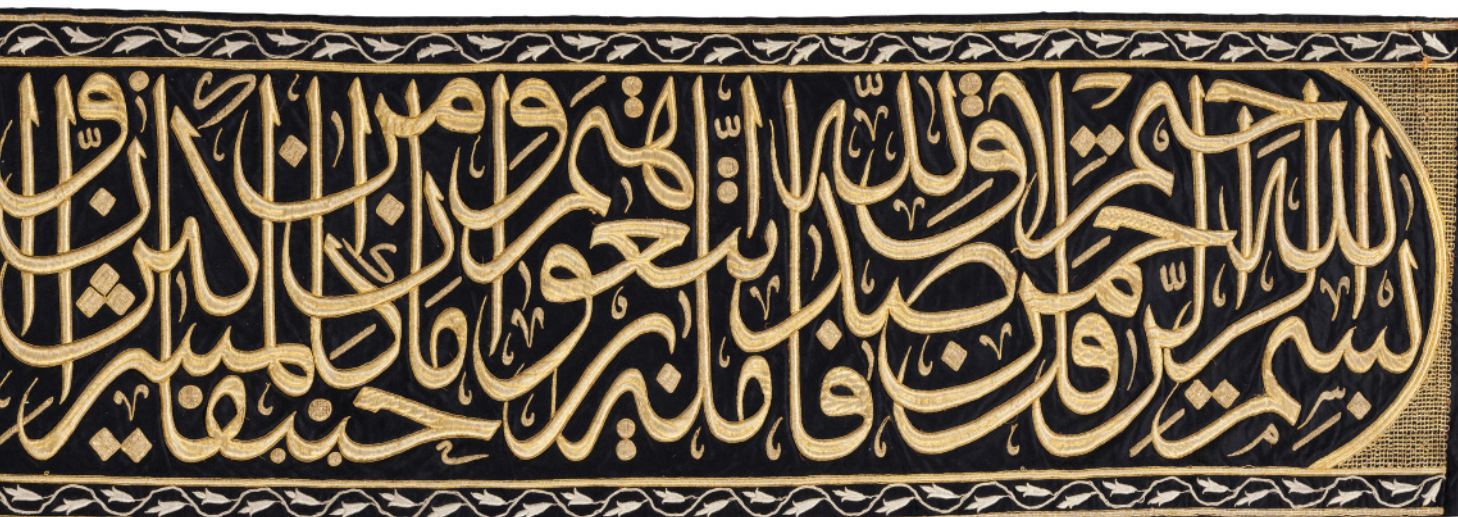 بسم الله الرحمن الرحيم قل صدق الله فاتبعوا ملة ابرهيم حنيفا وما كان من المشركين ان